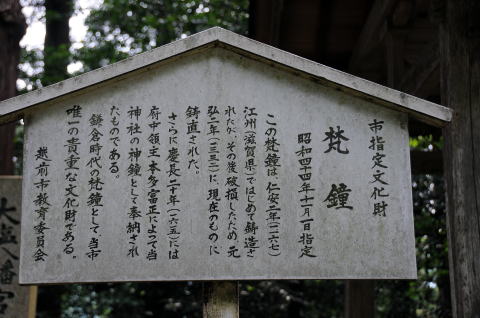 市指定文化財
梵鐘
昭和四十四年十一月一日指定
この梵鐘は、仁安二年(一一六七)
江州(滋賀県)ではじめて鋳造さ
れたが、その後破損したため、元
弘二年(一三三二)、現在のものに
鋳直された。
さらに慶長二十年(一六一五)には
府中領主・本多富正によって当
神社の神鐘として奉納され
たものである。
鎌倉時代の梵鐘として、当市
唯一の貴重な文化財である。
越前市教育委員会
大塩八幡宮